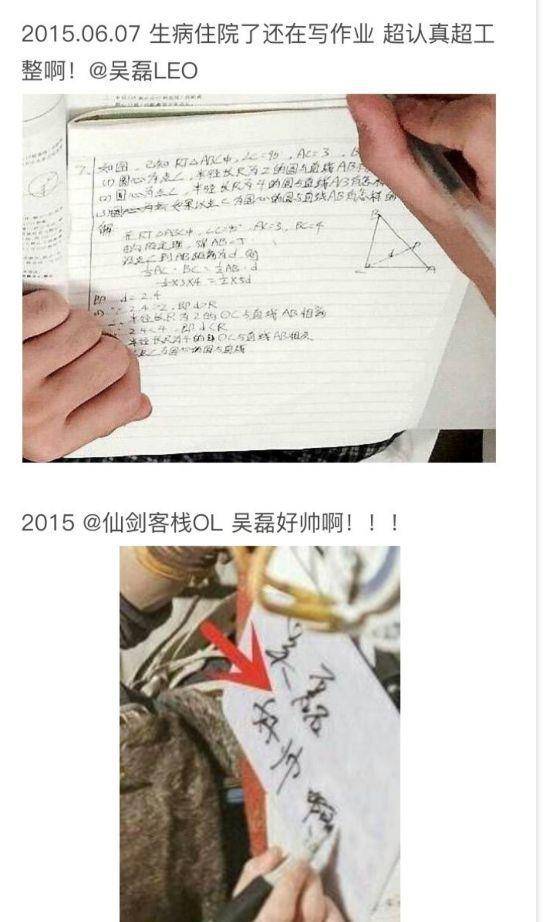 2015.06.07 生病住院了还在写作业 超认真超工
整啊！@吴磊LEO
7. 如图，已知 RT△ABC中，∠C=90°，AC=3，B
(1) 圆心为点C，半径长R为2的圆与直线AB
(2) 圆心为点C，半径长R为4的圆与直线AB有怎样
如果以点C为圆心的圆与直线AB有怎样的
解：在RT△ABC中，∠C=90°，AC=3，BC=4
由勾股定理，得AB=5
设点C到AB的距离为d，则
½AC·BC=½AB·d
½×3×4=½×5d
即 d=2.4
∵ 2.4>2，即d>R
半径长R为2的⊙C与直线AB相离
∵ 2.4<4，即d<R
半径长R为4的⊙C与直线AB相交
为圆心的圆与直线
B
C
A
2015 @仙剑客栈OL 吴磊好帅啊！！！
吴磊
好帅